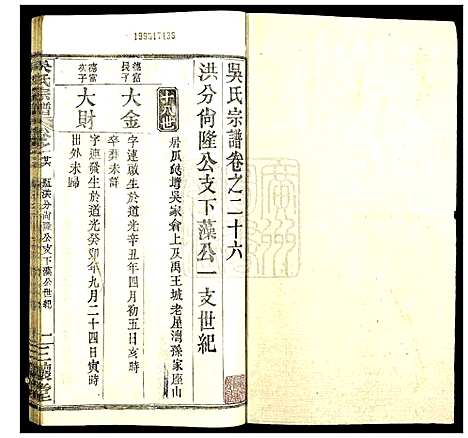 199317135
吳氏宗譜卷之二十六
洪分尙隆公支下藻公一支世紀
十八世
居瓜𡋾增吳家倉上及禹王城老屋灣孫家座山
德富長子
大金
字連啟生於道光辛丑年四月初五日亥時
卒葬未詳
德富次子
大財
字連發生於道光癸卯年九月二十四日寅時
出外未歸
吳氏宗譜
洪分尙隆公支下藻公世紀